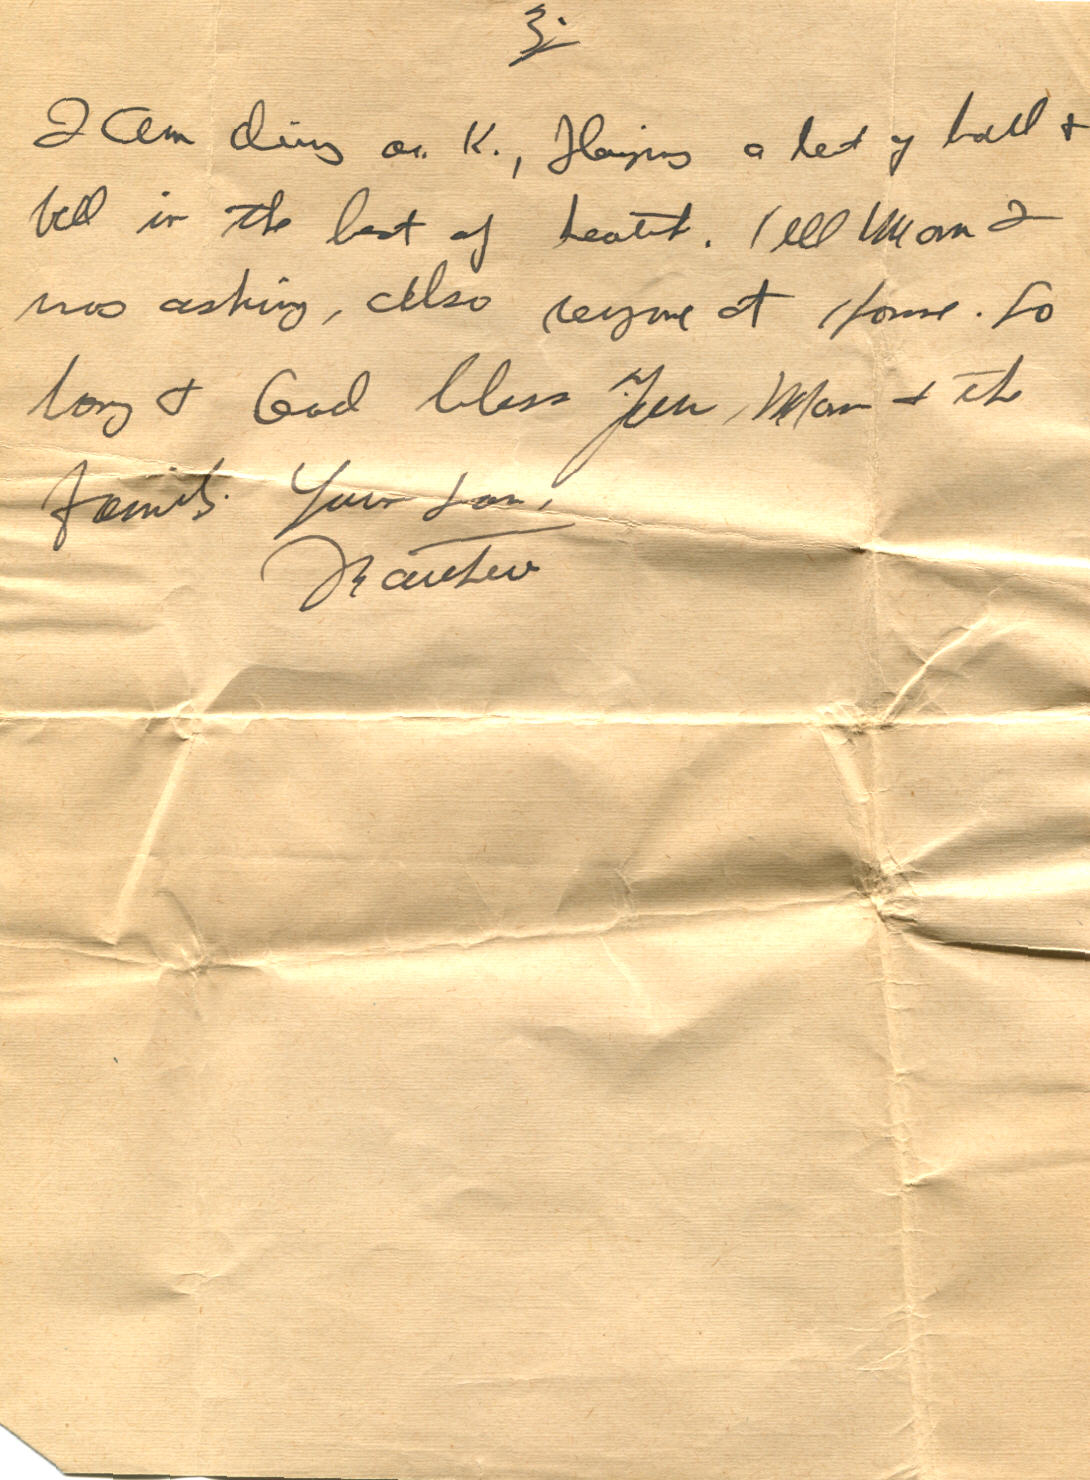 3.
I am doing O. K., Playing a lot of ball &
still in the best of health. Tell Mom I
was asking, also everyone at home. So
long & God bless You, Mom & the
family. Your Son,
Matthew